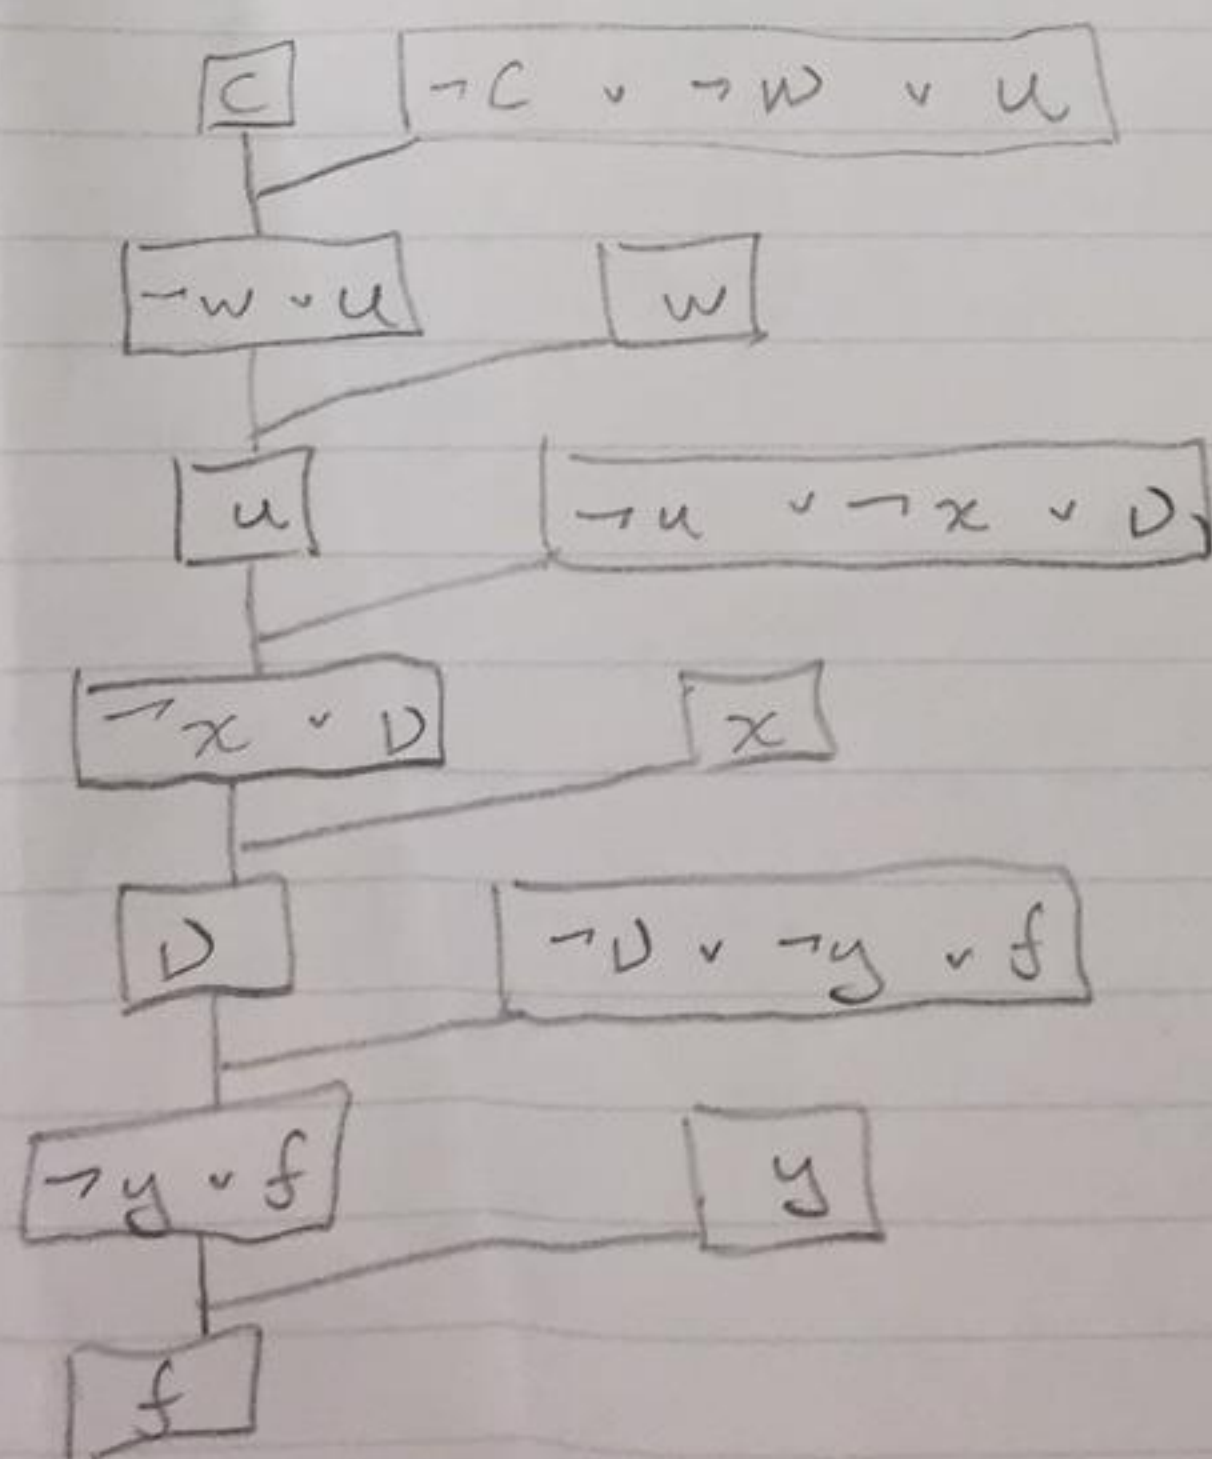 C ¬C ∨ ¬W ∨ U
¬W ∨ U W
U ¬U ∨ ¬x ∨ D
¬x ∨ D x
D ¬D ∨ ¬y ∨ f
¬y ∨ f y
f